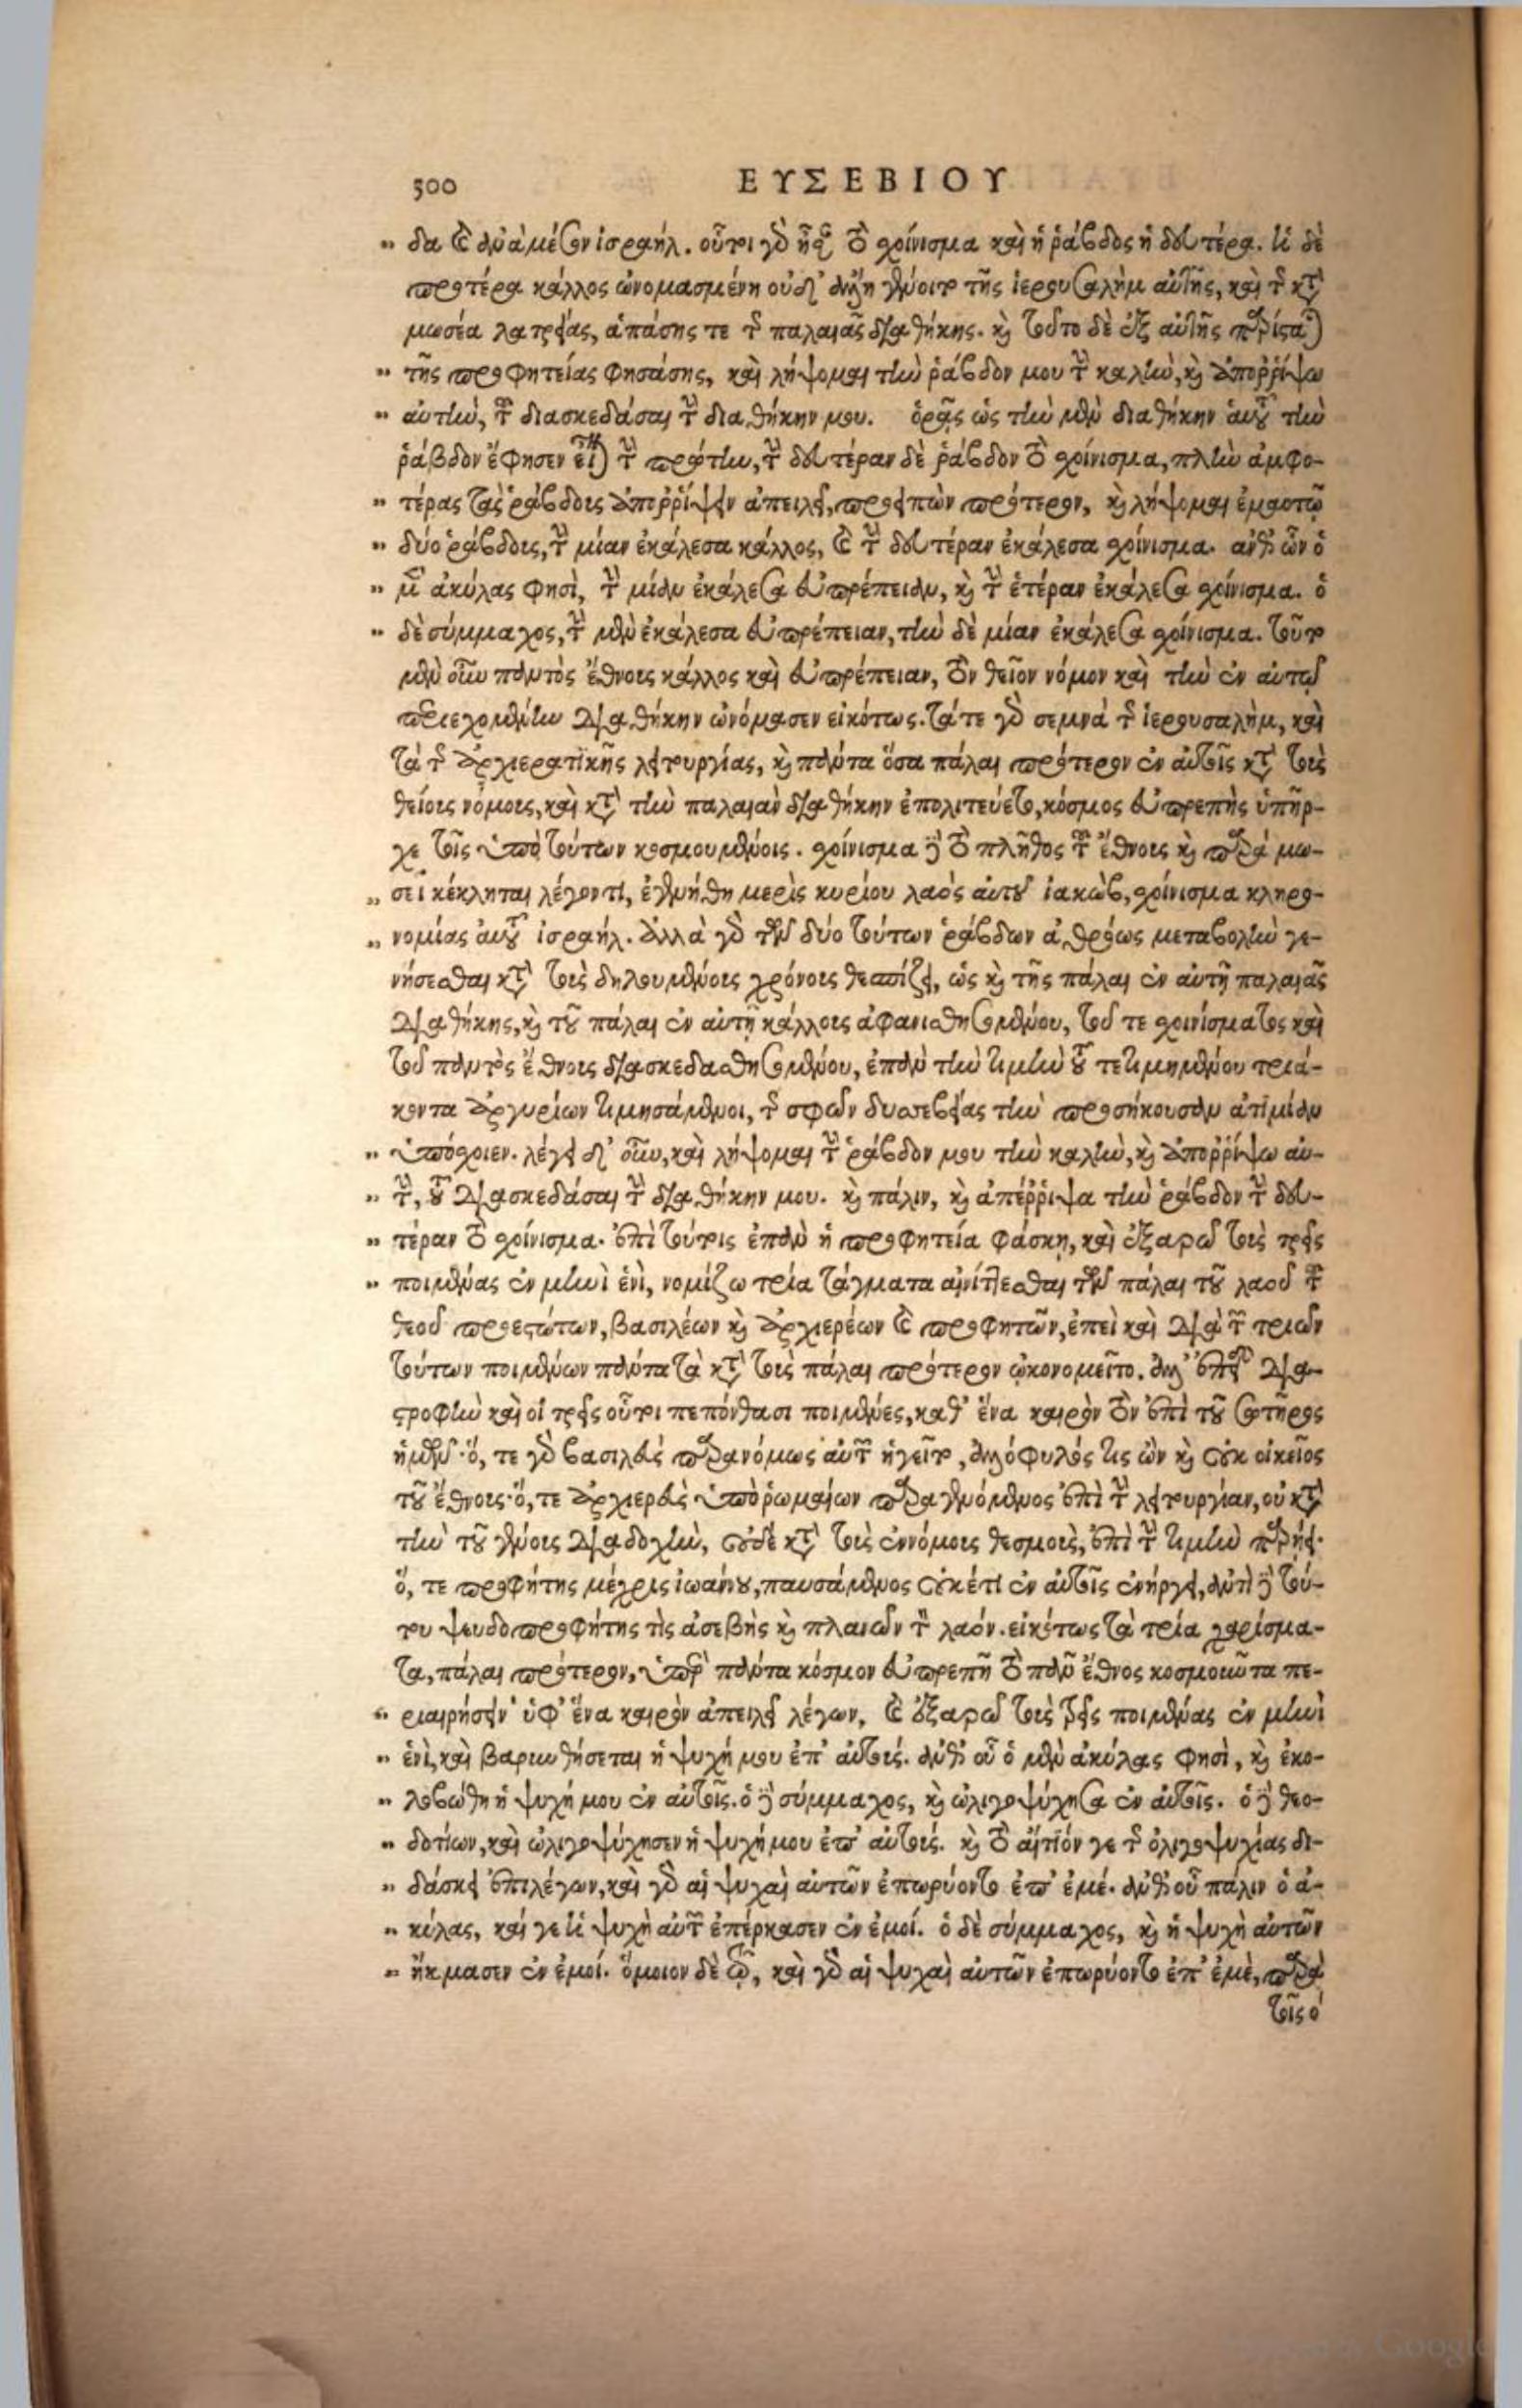 500 ΕΥΣΕΒΙΟΥ
„ δα καὶ ἀναμέσον ἰσραήλ. οὗτοι γὰρ ἦσαν τὸ χοίνισμα καὶ ἡ ῥάβδος ἡ δευτέρα. ἡ δὲ
προτέρα κάλλος ὠνομασμένη οὐδ' ἄλλη γένοιτο τῆς ἱερουσαλὴμ αὐτῆς, καὶ τῆς κατὰ
μωσέα λατρείας, ἁπάσης τε τῆς παλαιᾶς διαθήκης. καὶ τοῦτο δὲ ἐξ αὐτῆς παρίσταται
„ τῆς προφητείας φησάσης, καὶ λήψομαι τὴν ῥάβδον μου τὴν καλὴν, καὶ ἀποῤῥίψω
„ αὐτὴν, τοῦ διασκεδάσαι τὴν διαθήκην μου. ὁρᾷς ὡς τὴν μὲν διαθήκην αὐτοῦ τὴν
ῥάβδον ἔφησεν εἶναι τὴν πρώτην, τὴν δευτέραν δὲ ῥάβδον τὸ χοίνισμα, πλὴν ἀμφο-
„ τέρας τὰς ῥάβδους ἀποῤῥίψειν ἀπειλεῖ, προειπὼν πρότερον, καὶ λήψομαι ἐμαυτῷ
„ δύο ῥάβδους, τὴν μίαν ἐκάλεσα κάλλος, καὶ τὴν δευτέραν ἐκάλεσα χοίνισμα. ἀνθ' ὧν ὁ
„ μὲν ἀκύλας φησὶ, τὴν μίαν ἐκάλεσα εὐπρέπειαν, καὶ τὴν ἑτέραν ἐκάλεσα χοίνισμα. ὁ
„ δὲ σύμμαχος, τὴν μὲν ἐκάλεσα εὐπρέπειαν, τὴν δὲ μίαν ἐκάλεσα χοίνισμα. τοῦ
μὲν οὖν παντὸς ἔθνους κάλλος καὶ εὐπρέπειαν, τὸν θεῖον νόμον καὶ τὴν ἐν αὐτῷ
περιεχομένην διαθήκην ὠνόμασεν εἰκότως. τά τε γὰρ σεμνὰ τῆς ἱερουσαλὴμ, καὶ
τὰ τῆς ἀρχιερατικῆς λειτουργίας, καὶ πάντα ὅσα πάλαι πρότερον ἐν αὐτοῖς κατὰ τοὺς
θείους νόμους, καὶ κατὰ τὴν παλαιὰν διαθήκην ἐπολιτεύετο, κόσμος εὐπρεπὴς ὑπῆρ-
χε τοῖς ὑπὸ τούτων κοσμουμένοις. χοίνισμα δὲ τὸ πλῆθος τοῦ ἔθνους καὶ παρὰ μω-
„ σεῖ κέκληται λέγοντι, ἐγενήθη μερὶς κυρίου λαὸς αὐτοῦ ἰακὼβ, χοίνισμα κληρο-
„ νομίας αὐτοῦ ἰσραήλ. ἀλλὰ γὰρ τῶν δύο τούτων ῥάβδων ἀθρόως μεταβολὴν γε-
νήσεσθαι κατὰ τοὺς δηλουμένους χρόνους θεσπίζει, ὡς καὶ τῆς πάλαι ἐν αὐτῇ παλαιᾶς
διαθήκης, καὶ τοῦ πάλαι ἐν αὐτῇ κάλλους ἀφανισθησομένου, τοῦ τε χοινίσματος καὶ
τοῦ παντὸς ἔθνους διασκεδασθησομένου, ἐπὰν τὴν τιμὴν τοῦ τετιμημένου τριά-
κοντα ἀργυρίων τιμησάμενοι, τῆς σφῶν δυσσεβείας τὴν προσήκουσαν ἀτιμίαν
„ ὑπόσχοιεν. λέγει δ' οὖν, καὶ λήψομαι τὴν ῥάβδον μου τὴν καλὴν, καὶ ἀποῤῥίψω αὐ-
„ τὴν, τοῦ διασκεδάσαι τὴν διαθήκην μου. καὶ πάλιν, καὶ ἀπέῤῥιψα τὴν ῥάβδον τὴν δευ-
„ τέραν τὸ χοίνισμα. ἐπὶ τούτοις ἐπὰν ἡ προφητεία φάσκῃ, καὶ ἐξαρῶ τοὺς τρεῖς
„ ποιμένας ἐν μηνὶ ἑνὶ, νομίζω τρία τάγματα αἰνίττεσθαι τῶν πάλαι τοῦ λαοῦ τοῦ
θεοῦ προεστώτων, βασιλέων καὶ ἀρχιερέων καὶ προφητῶν, ἐπεὶ καὶ διὰ τῶν τριῶν
τούτων ποιμένων πάντα τὰ κατὰ τοὺς πάλαι πρότερον ᾠκονομεῖτο. ἀλλ' ὑπὲρ δια-
στροφὴν καὶ οἱ τρεῖς οὗτοι πεπόνθασι ποιμένες, καθ' ἕνα καιρὸν τὸν ἐπὶ τοῦ σωτῆρος
ἡμῶν· ὅ, τε γὰρ βασιλεὺς παρανόμως αὐτῶν ἡγεῖτο, ἀλλόφυλός τις ὢν καὶ οὐκ οἰκεῖος
τοῦ ἔθνους· ὅ, τε ἀρχιερεὺς ὑπὸ ῥωμαίων παραγενόμενος ἐπὶ τὴν λειτουργίαν, οὐ κατὰ
τὴν τοῦ γένους διαδοχὴν, οὐδὲ κατὰ τοὺς ἐννόμους θεσμοὺς, ἐπὶ τὴν τιμὴν παρῄει·
ὅ, τε προφήτης μέχρις ἰωάννου, παυσάμενος οὐκέτι ἐν αὐτοῖς ἐνήργει, ἀντὶ δὲ τού-
του ψευδοπροφήτης τὶς ἀσεβὴς καὶ πλανῶν τὸν λαόν. εἰκότως τὰ τρία χαρίσμα-
τα, πάλαι πρότερον, ὑπὲρ πάντα κόσμον εὐπρεπῆ τὸ πᾶν ἔθνος κοσμοῦντα πε-
„ ριαιρήσειν ὑφ' ἕνα καιρὸν ἀπειλεῖ λέγων, καὶ ἐξαρῶ τοὺς τρεῖς ποιμένας ἐν μηνὶ
„ ἑνὶ, καὶ βαρυνθήσεται ἡ ψυχή μου ἐπ' αὐτούς. ἀνθ' οὗ ὁ μὲν ἀκύλας φησὶ, καὶ ἐκο-
„ λοβώθη ἡ ψυχή μου ἐν αὐτοῖς. ὁ δὲ σύμμαχος, καὶ ὠλιγοψύχησα ἐν αὐτοῖς. ὁ δὲ θεο-
„ δοτίων, καὶ ὠλιγοψύχησεν ἡ ψυχή μου ἐπ' αὐτούς. καὶ τὸ αἴτιόν γε τῆς ὀλιγοψυχίας δι-
„ δάσκει ἐπιλέγων, καὶ γὰρ αἱ ψυχαὶ αὐτῶν ἐπωρύοντο ἐπ' ἐμέ. ἀνθ' οὗ πάλιν ὁ ἀ-
„ κύλας, καί γε ἡ ψυχὴ αὐτῶν ἐπέρκασεν ἐν ἐμοί. ὁ δὲ σύμμαχος, καὶ ἡ ψυχὴ αὐτῶν
„ ἤκμασεν ἐν ἐμοί. ὅμοιον δὲ τῷ, καὶ γὰρ αἱ ψυχαὶ αὐτῶν ἐπωρύοντο ἐπ' ἐμὲ, παρὰ
τοῖς ὁ